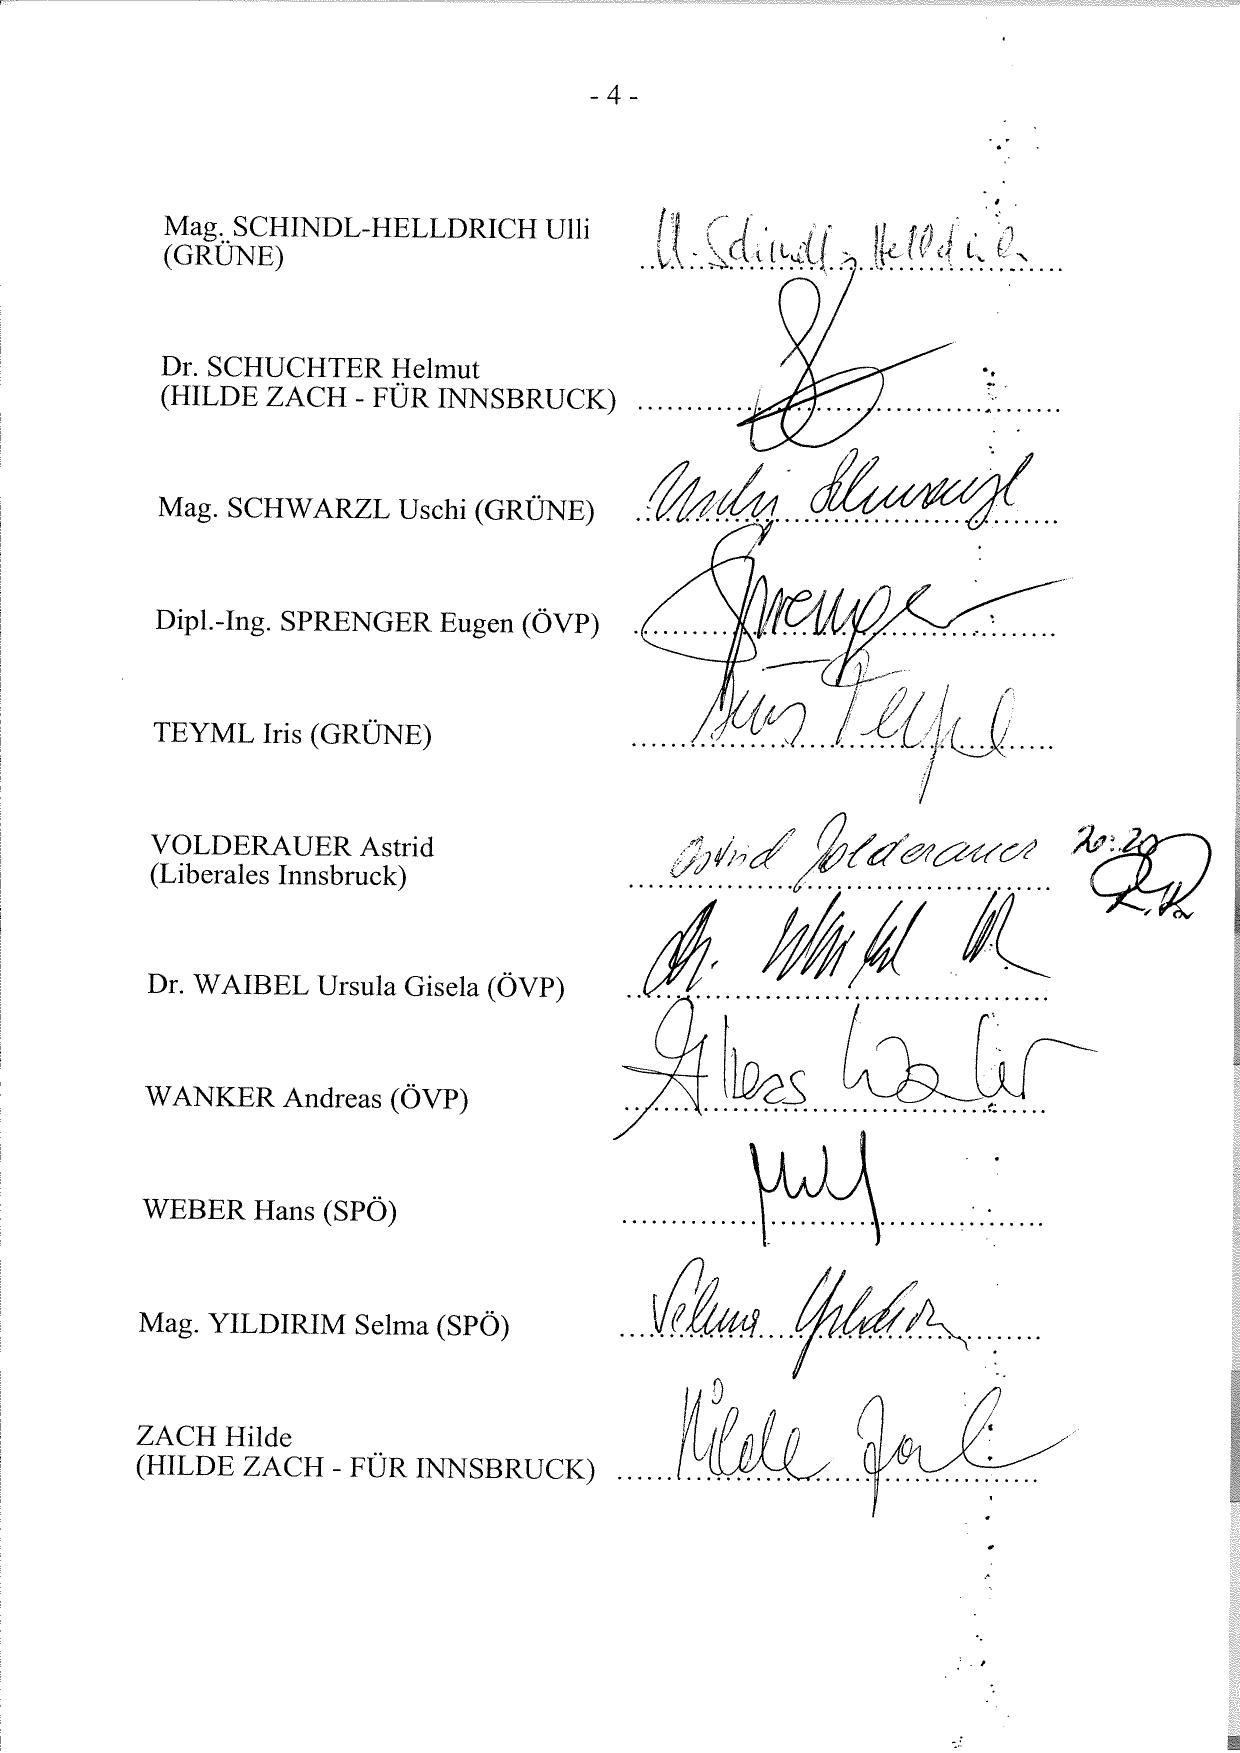 - 4 -
Mag. SCHINDL-HELLDRICH Ulli
(GRÜNE)
U. Schindl-Helldrich
Dr. SCHUCHTER Helmut
(HILDE ZACH - FÜR INNSBRUCK)
Mag. SCHWARZL Uschi (GRÜNE)
Uschi Schwarzl
Dipl.-Ing. SPRENGER Eugen (ÖVP)
Sprenger
TEYML Iris (GRÜNE)
Iris Teyml
VOLDERAUER Astrid
(Liberales Innsbruck)
Astrid Volderauer 20:20
Dr. WAIBEL Ursula Gisela (ÖVP)
Dr. Waibel
WANKER Andreas (ÖVP)
WEBER Hans (SPÖ)
Mag. YILDIRIM Selma (SPÖ)
Selma Yildirim
ZACH Hilde
(HILDE ZACH - FÜR INNSBRUCK)
Hilde Zach